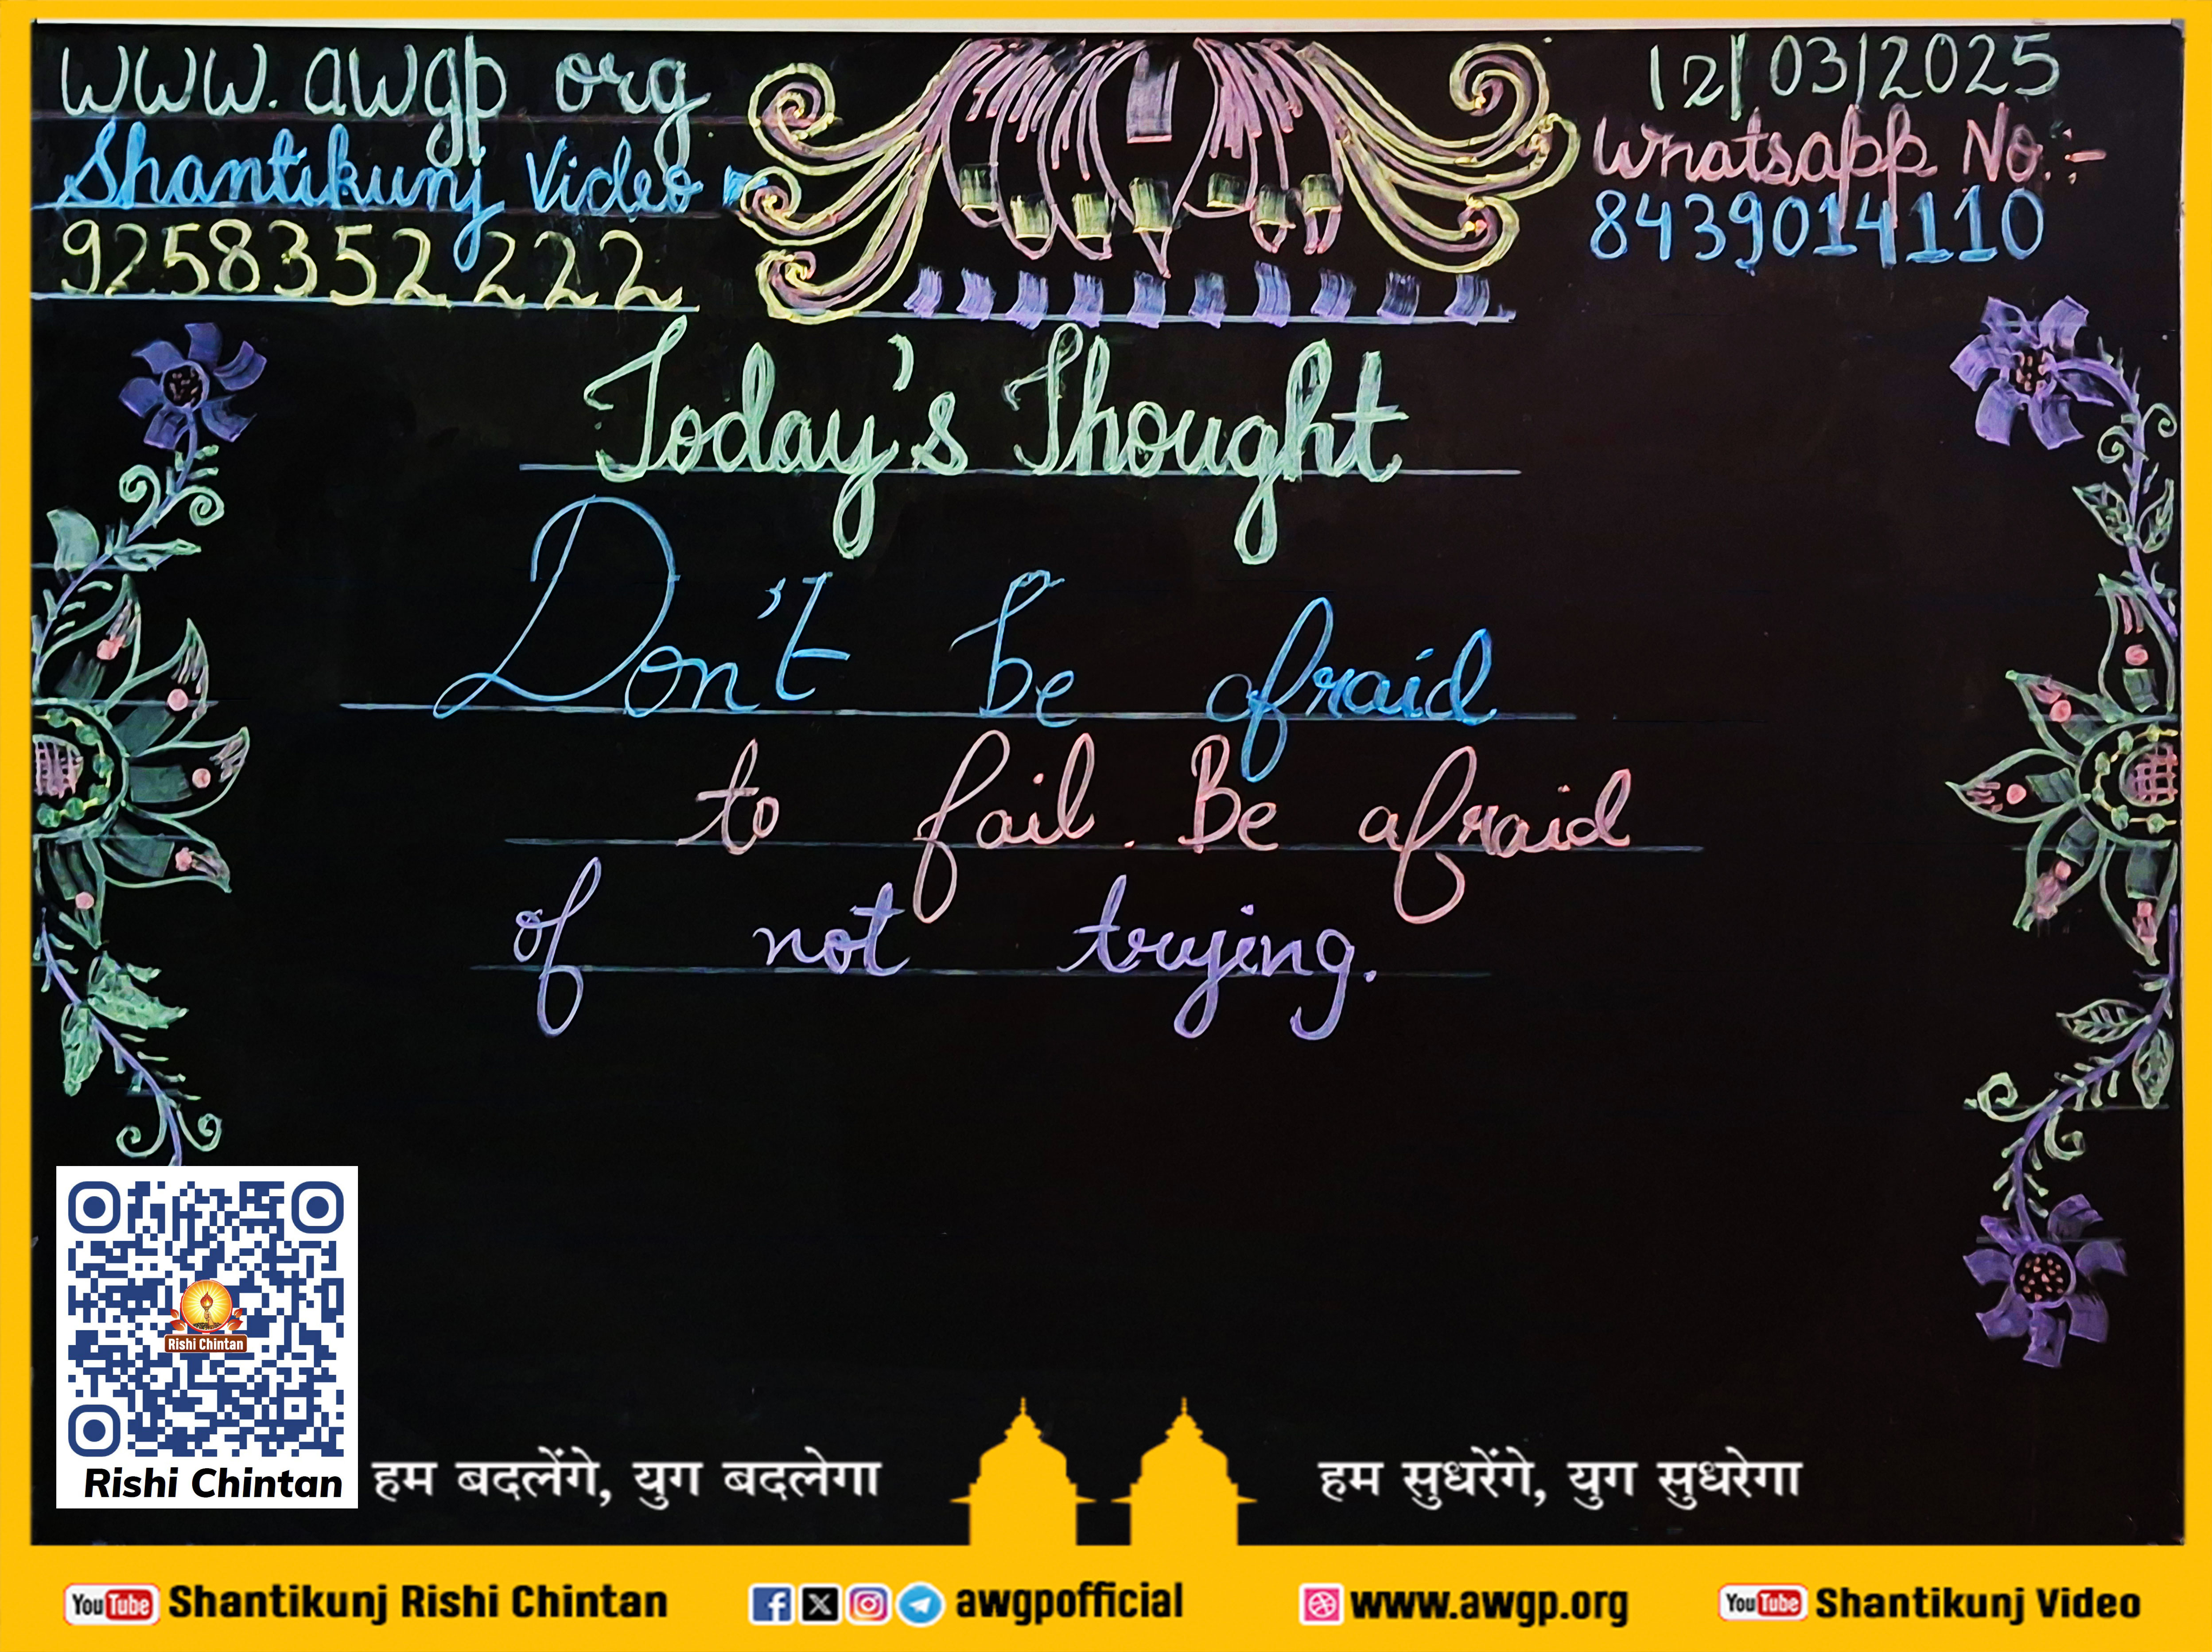 www.awgp org
Shantikunj Video
9258352222
12/03/2025
Whatsapp No.:-
8439014110
Today's Thought
Don't be afraid
to fail. Be afraid
of not trying.
Rishi Chintan
Rishi Chintan
हम बदलेंगे, युग बदलेगा
हम सुधरेंगे, युग सुधरेगा
YouTube Shantikunj Rishi Chintan
awgpofficial
www.awgp.org
YouTube Shantikunj Video